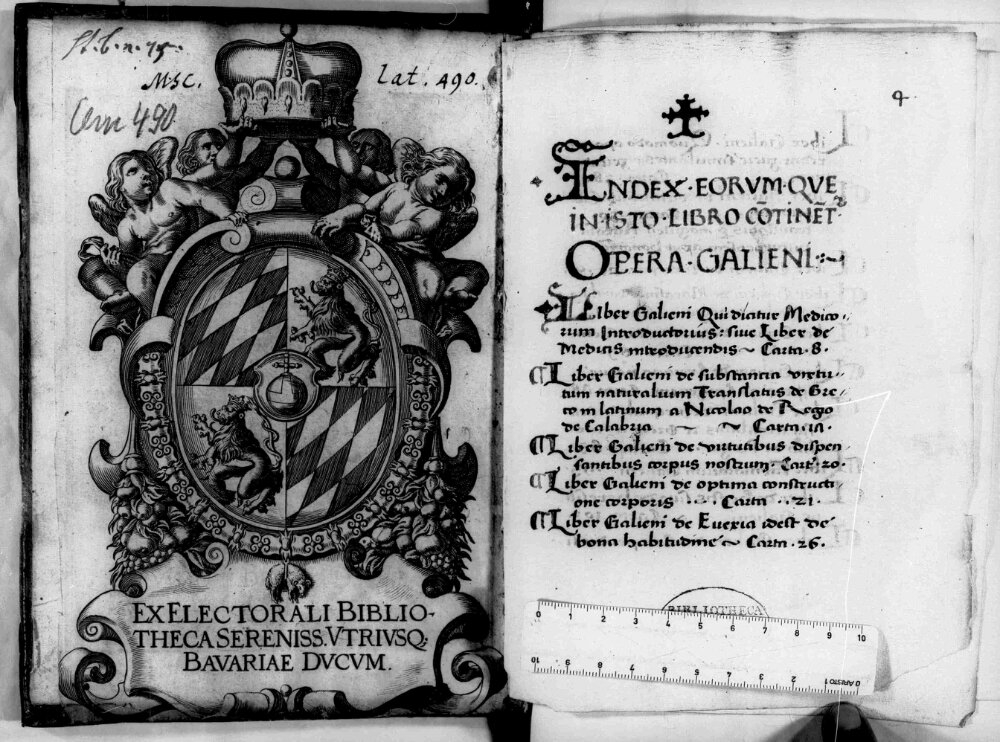 St. b. n. 75.
MSC. lat. 490.
Clm 490
EX ELECTORALI BIBLIO-
THECA SERENISS. VTRIVSQ;
BAVARIAE DVCVM.
INDEX·EORVM·QVE
IN·ISTO·LIBRO CŌTINĒT
OPERA·GALIENI
LIber Galieni Qui dicitur Medico-
rum Introductorius: siue Liber de
Medicis introducendis ~ Carta·8·
Liber Galieni de substantia virtu-
tum naturalium Translatus de Gre-
co in latinum a Nicolao de Regio
de Calabria ~ ~ Carta
Liber Galieni de virtutibus dispen
santibus corpus nostrum· Cart·20·
Liber Galieni de optima constructi-
one corporis Carta ·21·
Liber Galieni de Euexia idest de
bona habitudine ~ Carta·26·
BIBLIOTHECA
0 1 2 3 4 5 6 7 8 9 10
10 9 8 7 6 5 4 3 2 1 0 ARISTO